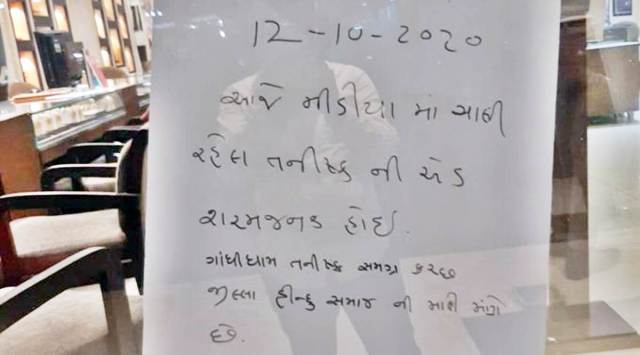 12-10-2020
આજે મીડીયા માં ચાલી
રહેલ તનીષ્ક ની એડ
શરમજનક હોઈ.
ગાંધીધામ તનીષ્ક સમગ્ર કચ્છ
જીલ્લા હીન્દુ સમાજ ની માફી માંગે
છે.